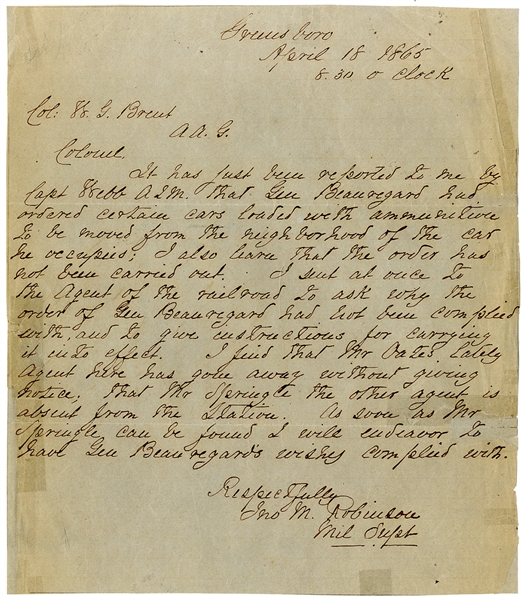 Greensboro
April 18 1865
8.30 o clock
Col: G. Brent
A A. G.
Colonel.
It has just been reported to me by
Capt Webb A.Q.M. that Gen Beauregard had
ordered certain cars loaded with ammunition
to be moved from the neighborhood of the car
he occupies; I also learn that the order has
not been carried out. I sent at once to
the Agent of the railroad to ask why the
order of Gen Beauregard had not been complied
with, and to give instructions for carrying
it into effect. I find that Mr Oates, lately
Agent here has gone away without giving
notice; that Mr Springle the other agent is
absent from the Station. As soon as Mr
Springle can be found I will endeavor to
have Gen Beauregard's wishes complied with.
Respectfully
Jno M. Robinson
Mil Supt